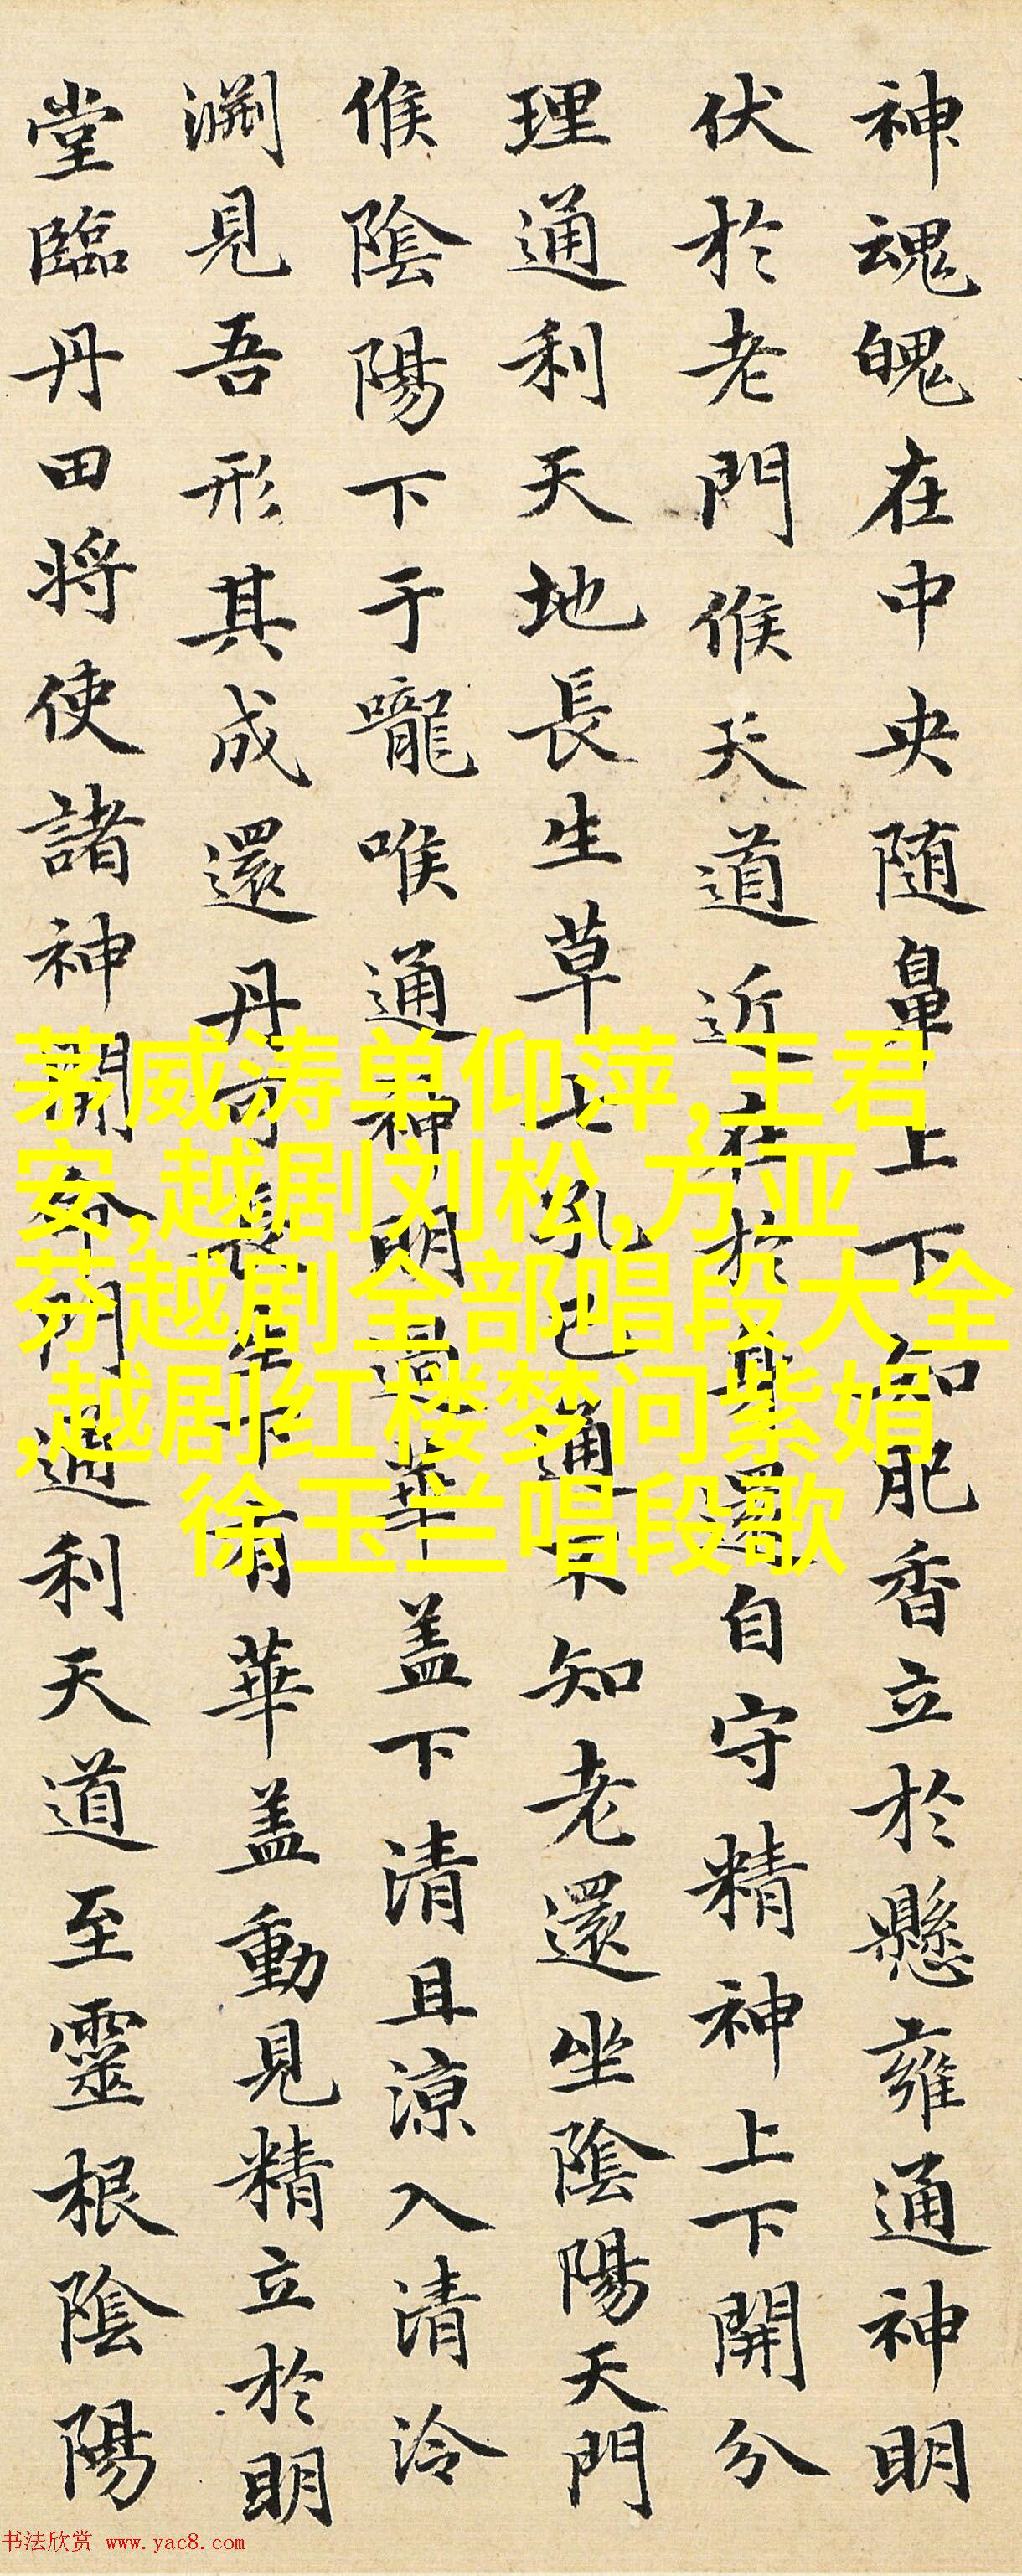 神魂魄在中央随鼻上下知肥香立於懸雍通神明
伏於老門候天道近在於身還自守精神上下開分
理通利天地長生草七孔已通不知老還坐陰陽天門
候陰陽下于嚨喉通神明過華盖下清且涼入清泠
渊見吾形其成還丹可長生下有華盖動見精立於明
堂臨丹田将使諸神開命門通利天道至靈根陰陽
茅威涛单仰萍,王君
安,越剧刘松,方亚
芬越剧全部唱段大全
,越剧红楼梦问紫娟
徐玉兰唱段歌
书法欣赏 www.yac8.com